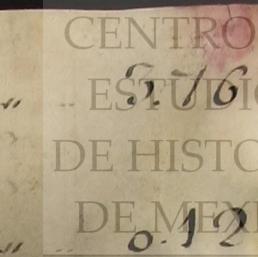 CENTRO
„ .. 5.76
ESTUDIO
DE HISTO
DE MEXI
„ .. 0.12